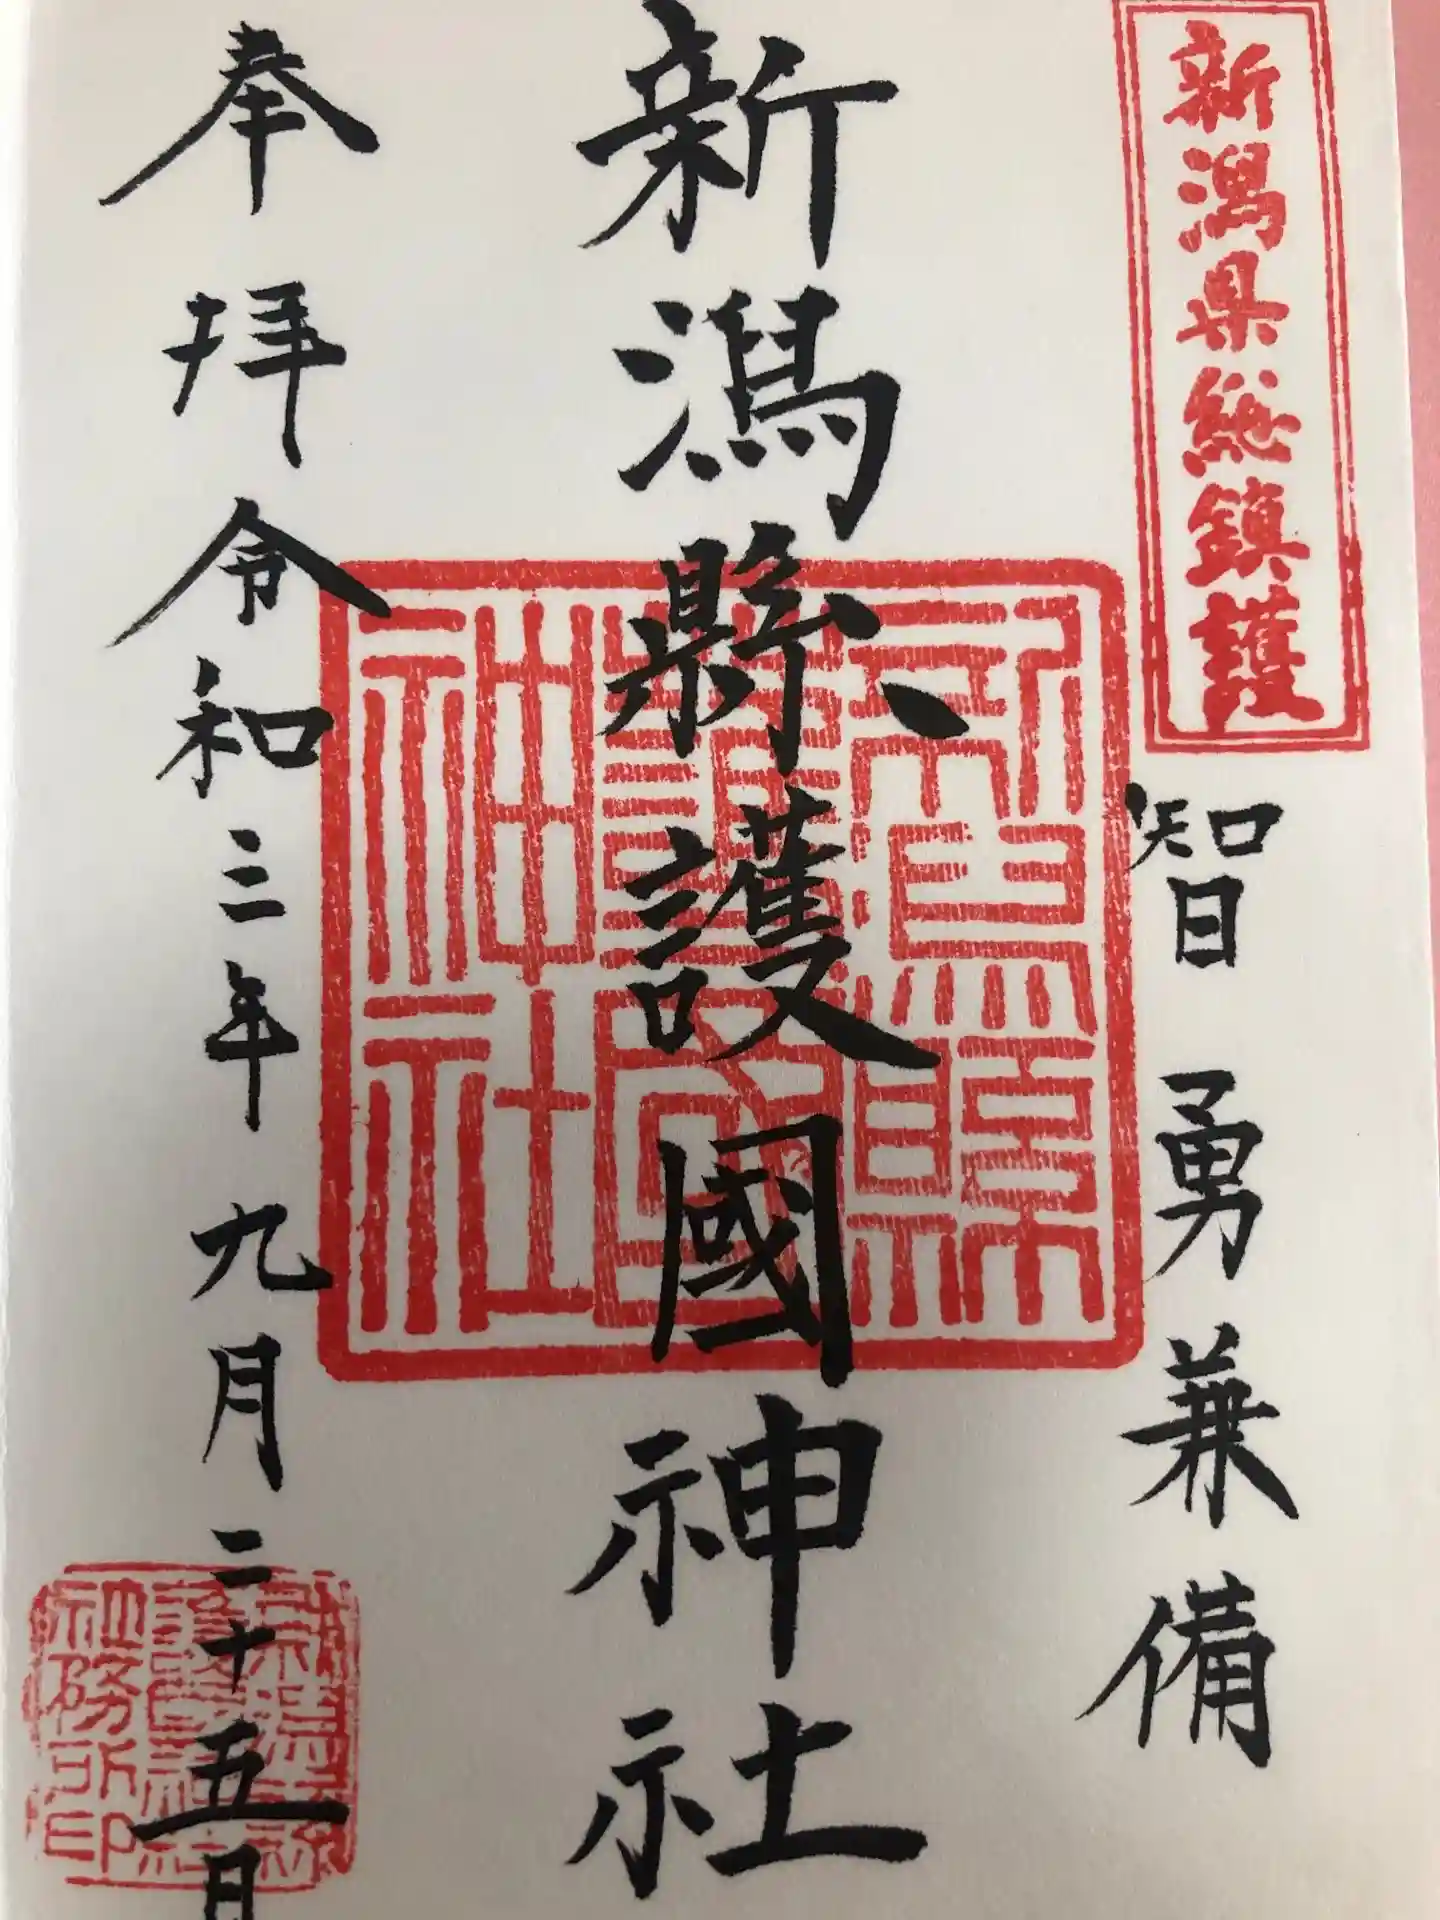 新潟県総鎮護
智勇兼備
新潟縣護國神社
新潟縣
護國
神社
奉拝令和三年九月二十五日
新潟縣
護國神社
社務所印